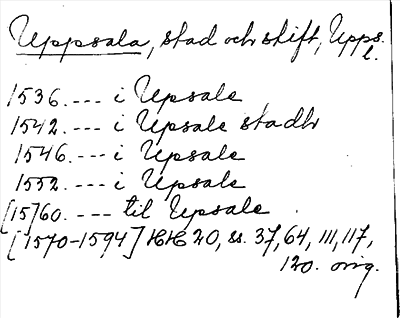 Uppsala, stad och stift, Upps.
l.
1536. --- i Upsale
1542. --- i Upsale stadh
1546. --- i Upsale
1552. --- i Upsale
[15]60. --- til Upsale
[1570-1594] HH 20, ss. 37, 64, 111, 117,
120. orig.